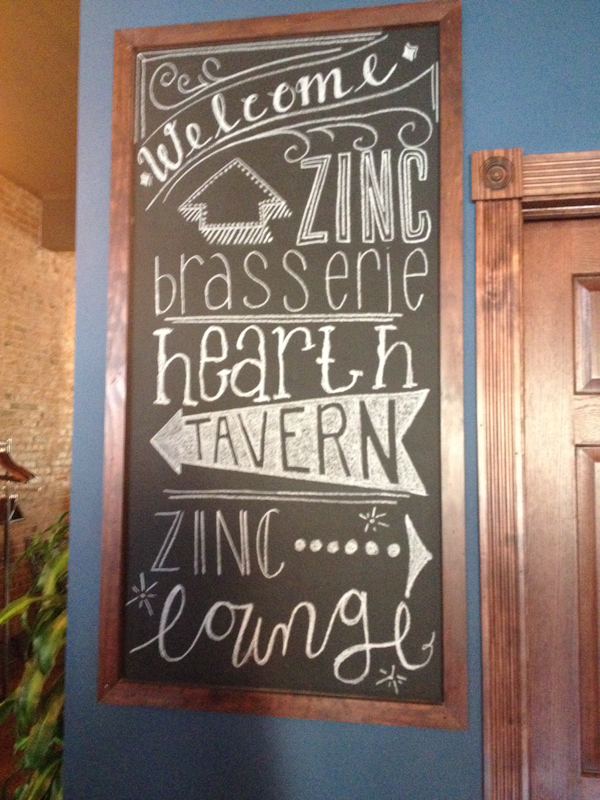 Welcome
ZINC
brasserie
hearth
TAVERN
ZINC
lounge